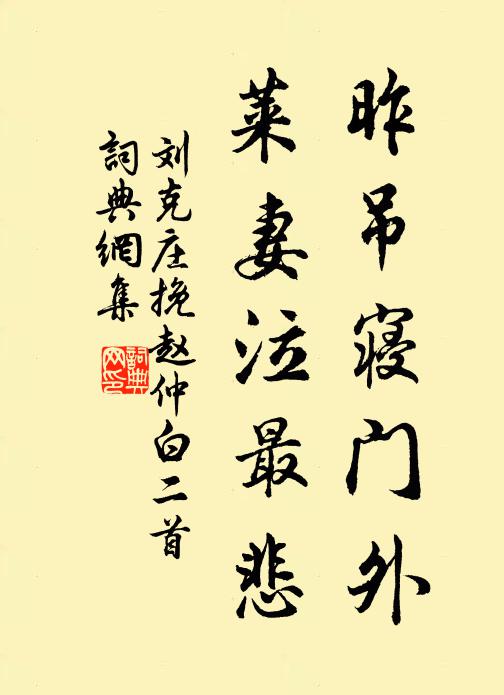 昨吊寝门外
莱妻泣最悲
刘克庄挽赵仲白二首
詞典網集
詞典网印